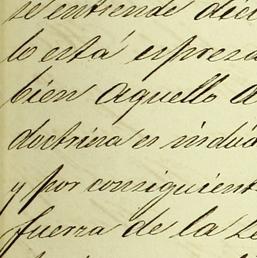 se entiende dicu
lo está espresa
bien aquello a
doctrina es induda
y por consiguient
fuerza de la